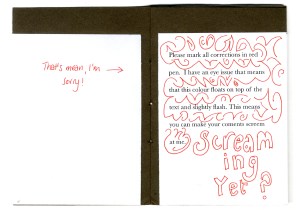 That's mean, I'm →
sorry!
Please mark all corrections in red
pen. I have an eye issue that means
that this colour floats on top of the
text and slightly flash. This means
you can make your coments scream
at me.
Scream
ing
Yet?